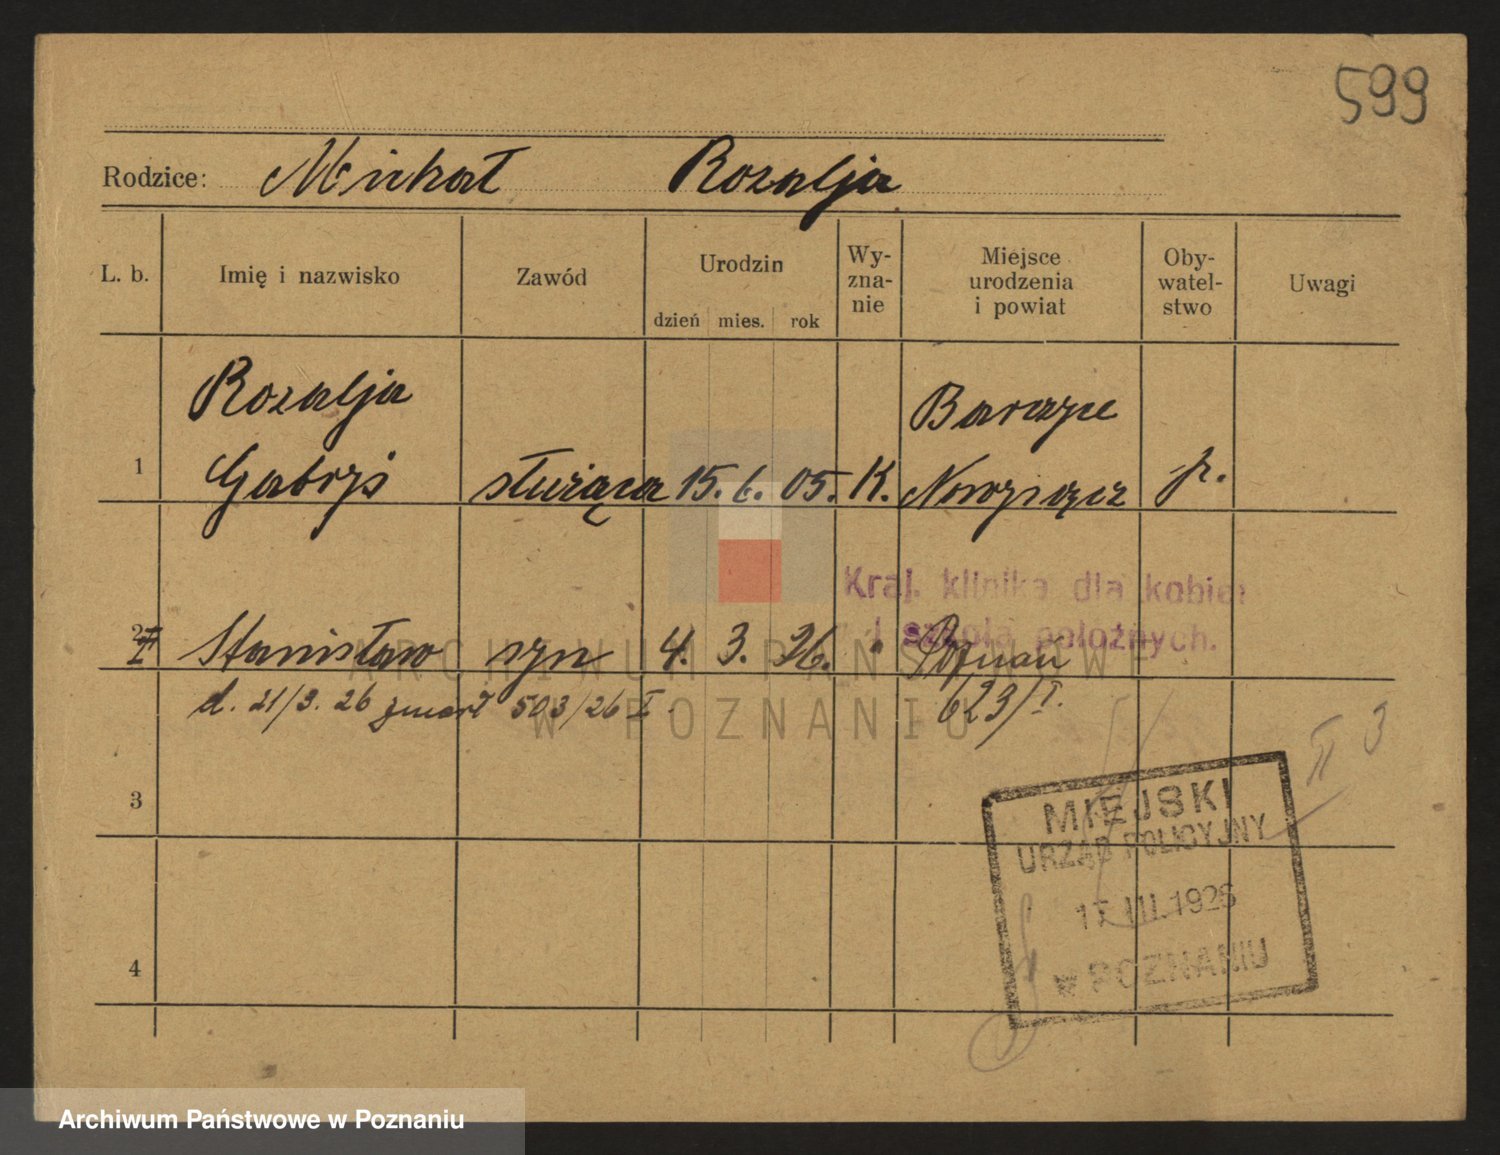 599
Rodzice: Michał Rozalja
L. b. Imię i nazwisko Zawód Urodzin dzień mies. rok Wy-zna-nie Miejsce urodzenia i powiat Oby-watel-stwo Uwagi
Rozalja Barczyce
1 Gabryś służąca 15. 6. 05. K. Nowysącz p.
Kraj. klinika dla kobiet
i szkoła położnych.
2 Stanisław syn 4. 3. 26. " Poznań
d. 21/3. 26 zmarł 503/26 I 623/I.
II 3
3
MIEJSKI
URZĄD POLICYJNY
17. III. 1926
w POZNANIU
4
ARCHIWUM PAŃSTWOWE
W POZNANIU
Archiwum Państwowe w Poznaniu